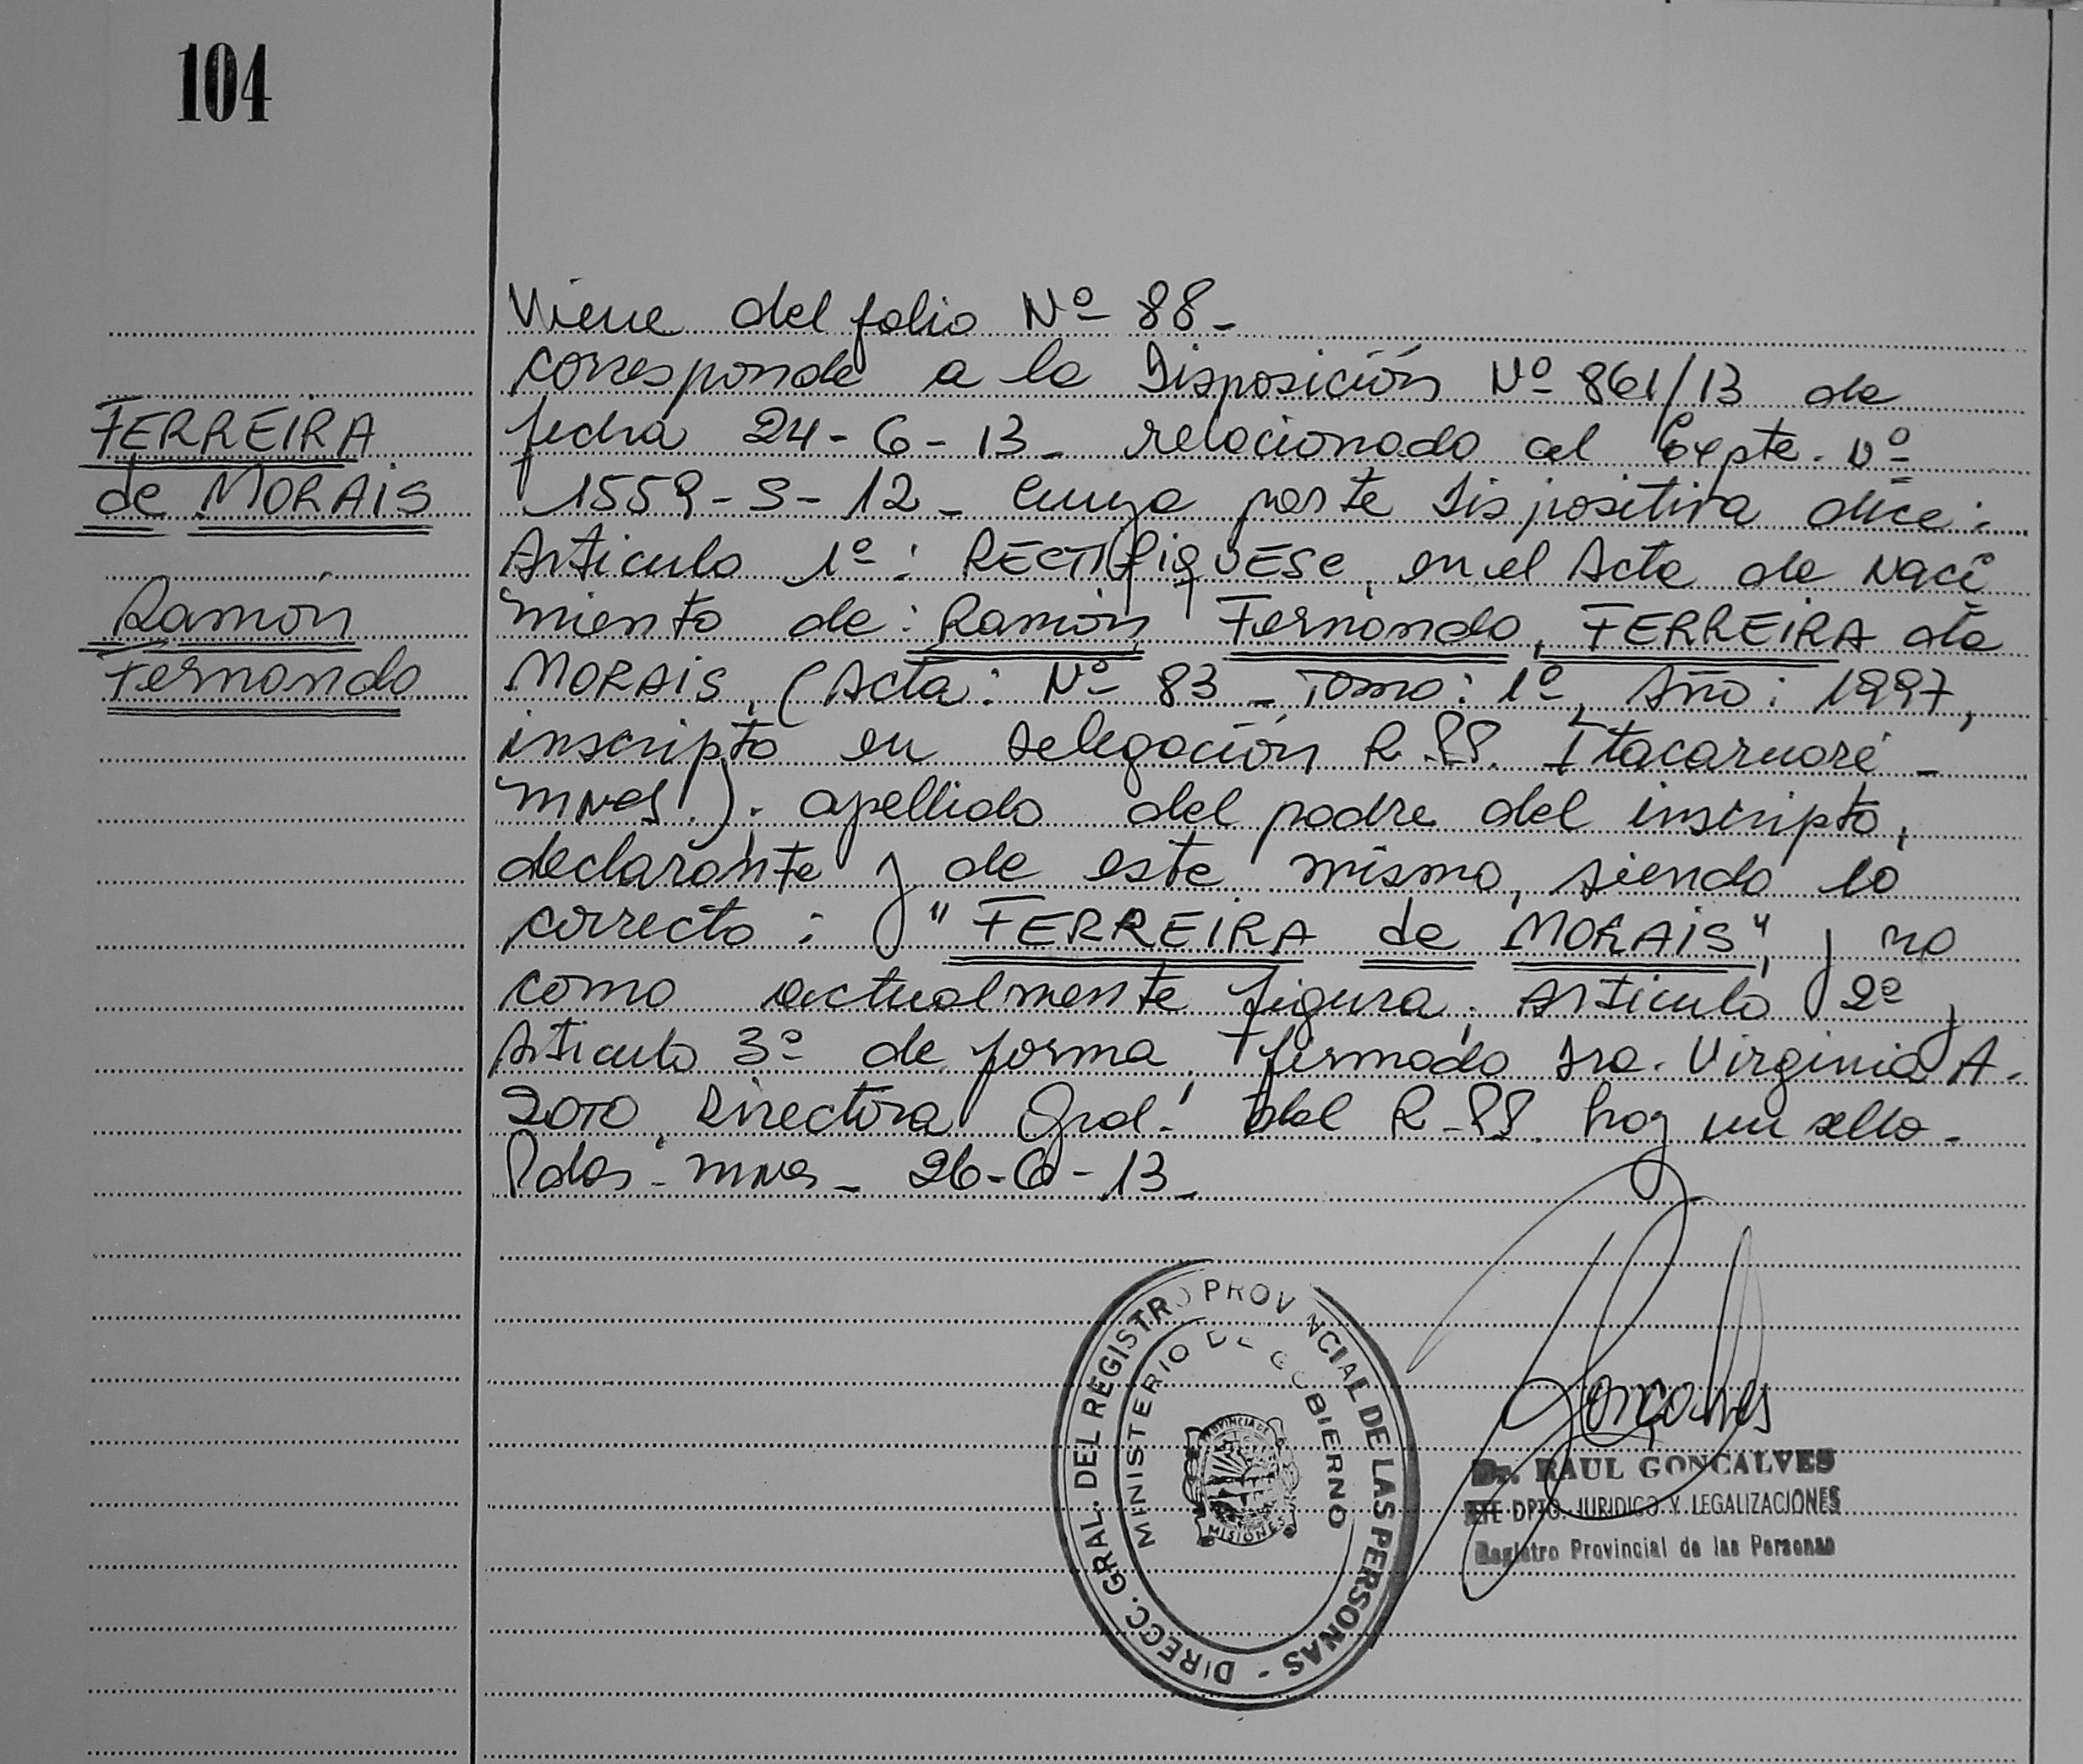 104
Viene del folio Nº 88-
corresponde a la Disposición Nº 861/13 de
FERREIRA
fecha 24-6-13- relacionado al Expte. Nº
de MORAIS
1559-S-12- cuya parte Dispositiva dice:
Articulo 1º: RECTIFIQUESE, en el Acta de Naci
Ramón
miento de: Ramón Fernando, FERREIRA da
Fernando
MORAIS, (Acta: Nº 83 - Tomo: 1º, Año: 1997,
inscripto en Delegación R.PP. Itacaruaré -
mnes.). apellido del padre del inscripto,
declarante y de este mismo, siendo lo
correcto: "FERREIRA de MORAIS", y no
como actualmente figura. Articulo 2º y
Articulo 3º de forma, Firmado Dra. Virginia A.
SOTO, Directora Gral. del R.PP. hay un sello-
Pdas- mnes- 26-6-13-
Goncalves
DIRECC. GRAL. DEL REGISTRO PROVINCIAL DE LAS PERSONAS -
MINISTERIO DE GOBIERNO
PROVINCIA DE
MISIONES
Dr. RAUL GONCALVES
JEFE DPTO. JURIDICO Y LEGALIZACIONES
Registro Provincial de las Personas